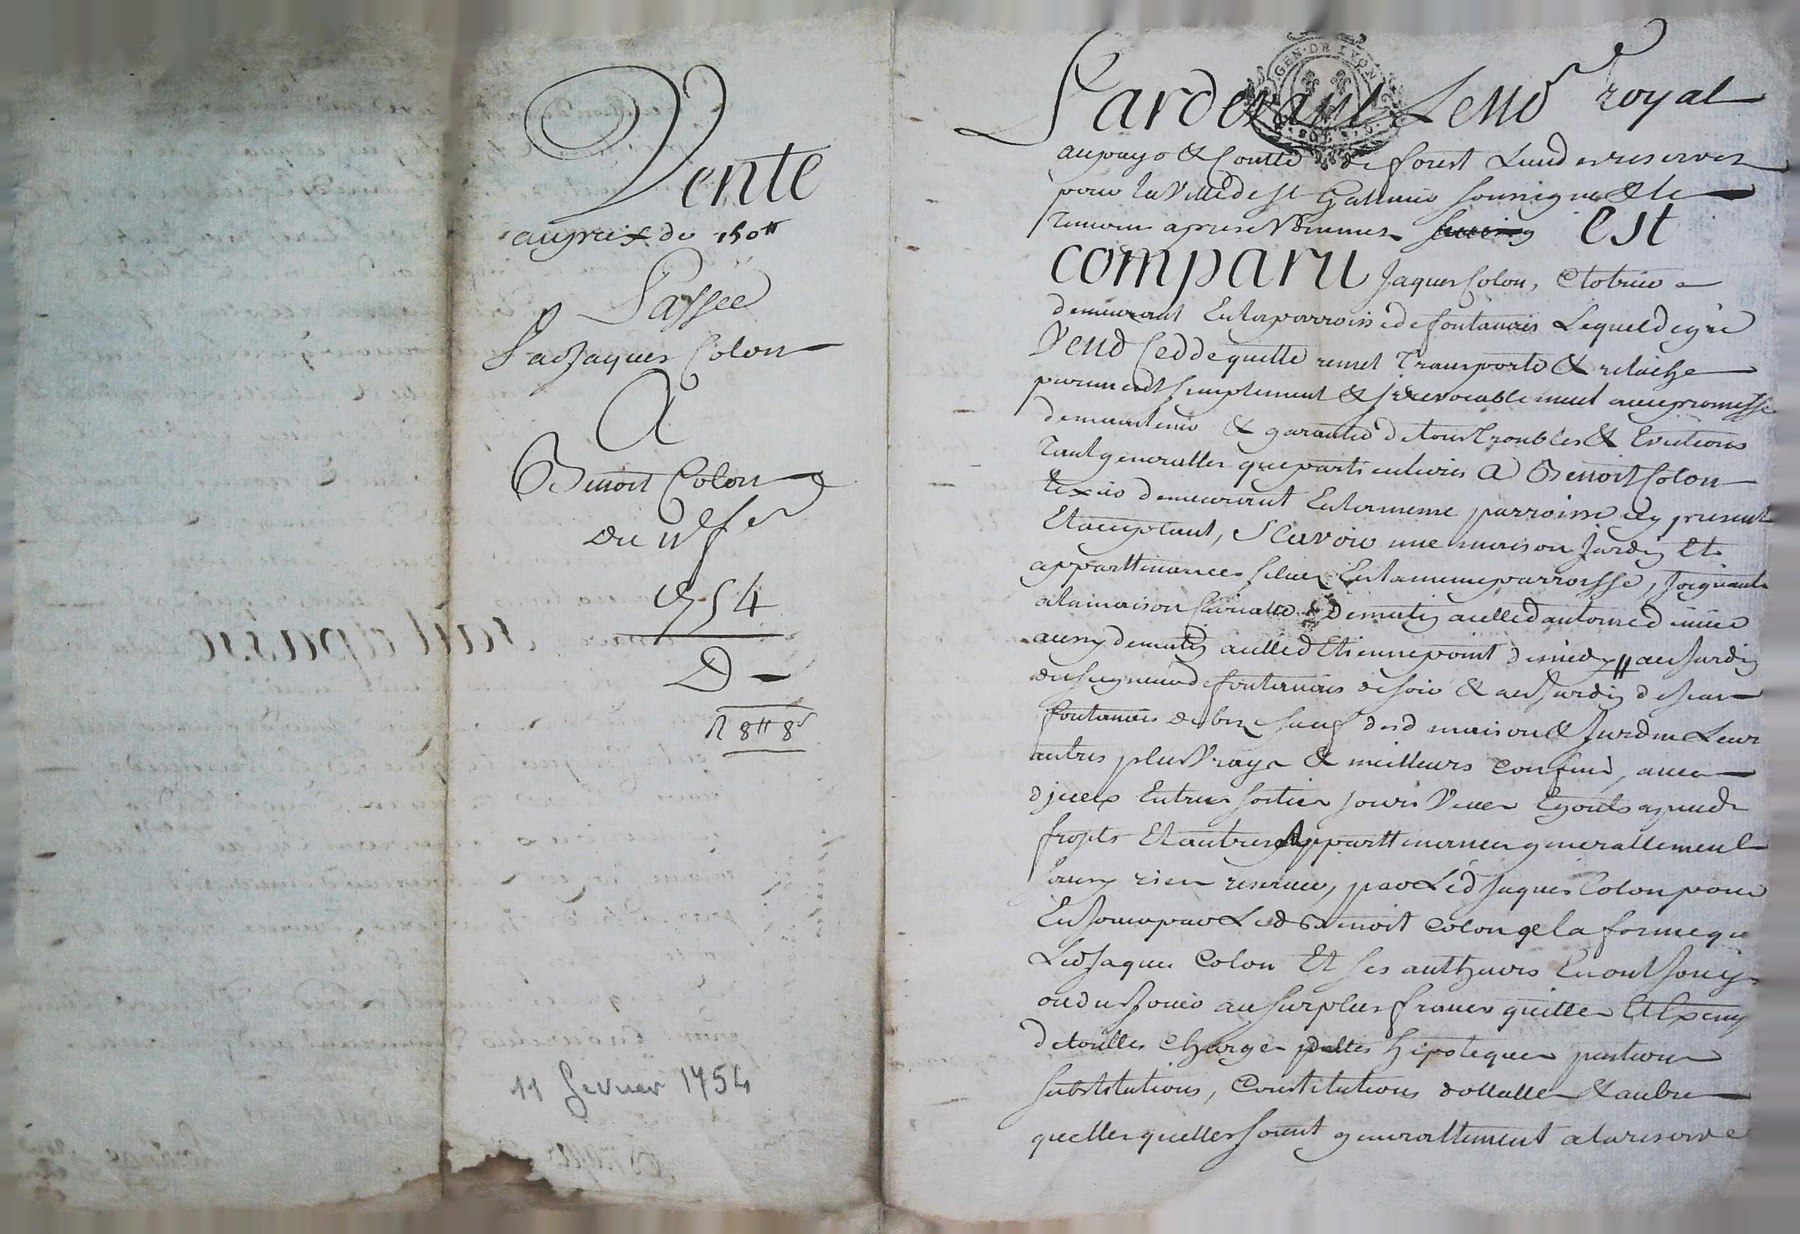 Vente
au prix de 150 ₶
Passée
Par Jaques Colon
A
Benoit Colon
Du 11 fer
1754
D
R 8₶ 8s
11 fevrier 1754
GEN DE LYON
Pardevant Le no royal
au pays & Comté de forest
pour la Ville de St Galmier soussigné & le
temoins apres Nommes est
comparu Jaques Colon,
demeurant En la parroisse de fontanais Lequel de gré
Vend Cedde quitte remet Transporte & relache
purement simplement & Irrevocablement avec promesse
de maintenir & garantir de tous Troubles & Evictions
Tant generalles que particulieres A Benoit Colon
demeurant En la meme parroisse icy present
Et acceptant, Scavoir une maison Jardin Et
appartenances scitues En la meme parroisse, Joignant
a la maison de matin a celle d antoine
aussy de matin a celle d Etienne point de midy au Jardin
du seigneur de fontanais de soir & au Jardin de Jean
fontanais de bize sauf desd maison & Jardin Leurs
autres plus Vrays & meilleurs confins, avec
Entrees sorties Jours Vues Egouts
Et autres Appartenances generallement
sans rien reserver, par Led Jaques Colon pour
En Jouir par Led Benoit Colon de la forme que
Led Jaques Colon Et ses autheurs En ont Jouy
ou du Jouir au surplus franc quitte Et Exempt
de toutes charges dettes hipoteques pentions
substitutions, Constitutions dottalles & autres
quelles quelles soient generallement a la reserve